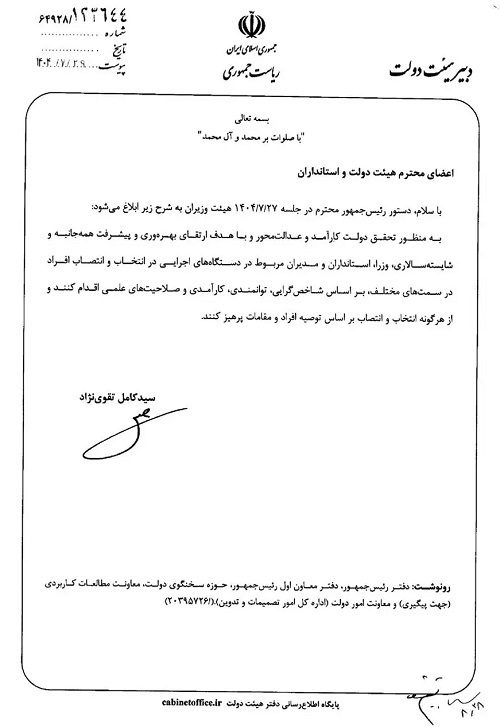 ۶۴۹۲۸/۱۲۳۶۴۴
شماره
تاریخ
۱۴۰۴/۷/۲۹
پیوست
جمهوری اسلامی ایران
ریاست جمهوری
دبیر هیئت دولت
بسمه تعالی
"با صلوات بر محمد و آل محمد"
اعضای محترم هیئت دولت و استانداران
با سلام، دستور رئیس‌جمهور محترم در جلسه ۱۴۰۴/۷/۲۷ هیئت وزیران به شرح زیر ابلاغ می‌شود:
به منظور تحقق دولت کارآمد و عدالت‌محور و با هدف ارتقای بهره‌وری و پیشرفت همه‌جانبه و
شایسته‌سالاری، وزرا، استانداران و مدیران مربوط در دستگاه‌های اجرایی در انتخاب و انتصاب افراد
در سمت‌های مختلف، بر اساس شاخص‌گرایی، توانمندی، کارآمدی و صلاحیت‌های علمی اقدام کنند و
از هرگونه انتخاب و انتصاب بر اساس توصیه افراد و مقامات پرهیز کنند.
سیدکامل تقوی‌نژاد
رونوشت: دفتر رئیس‌جمهور، دفتر معاون اول رئیس‌جمهور، حوزه سخنگوی دولت، معاونت مطالعات کاربردی
(جهت پیگیری) و معاونت امور دولت (اداره کل امور تصمیمات و تدوین).(/۲۰۳۹۵۷۲۶)
پایگاه اطلاع‌رسانی دفتر هیئت دولت cabinetoffice.ir